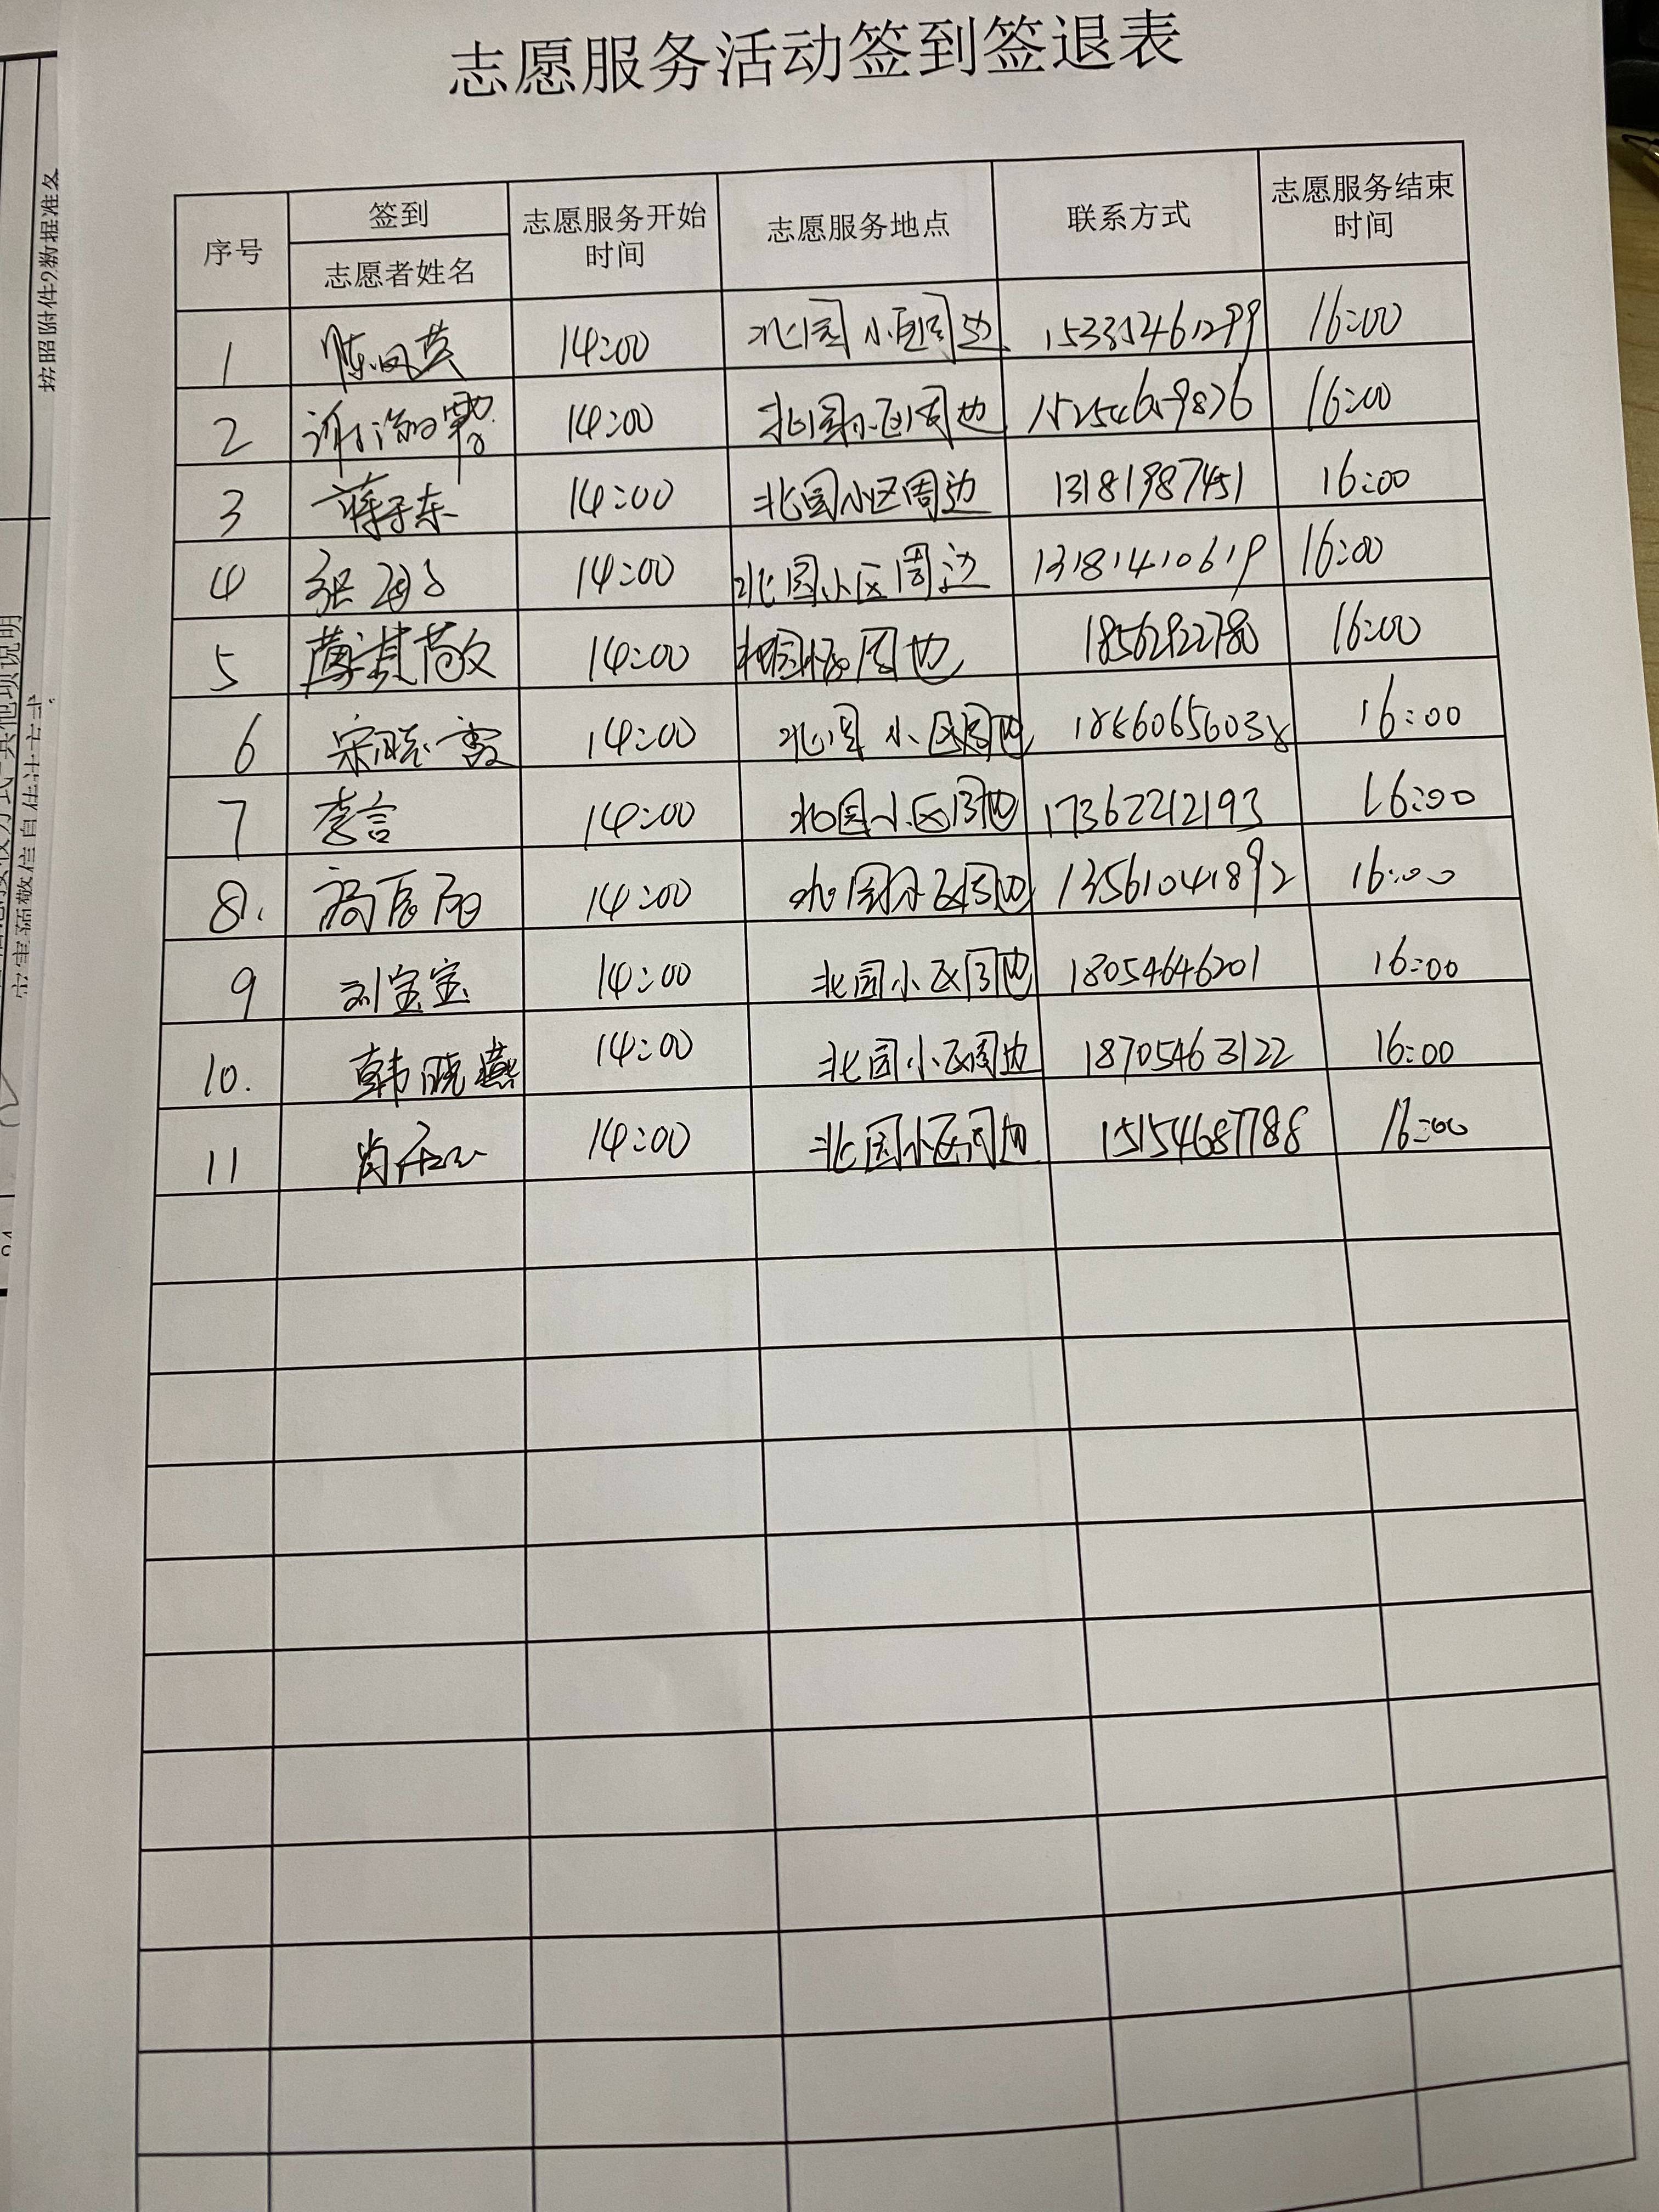 志愿服务活动签到签退表
序号 签到 志愿者姓名 志愿服务开始时间 志愿服务地点 联系方式 志愿服务结束时间
1 陈凤英 14:00 北国小区周边 15335461299 16:00
2 谢海霞 14:00 北国小区周边 16:00
3 蒋子东 14:00 北国小区周边 13181987451 16:00
4 张 14:00 北国小区周边 13181410619 16:00
5 薄其敬 14:00 北国小区周边 16:00
6 宋晓霞 14:00 北国小区周边 18660656038 16:00
7 李言 14:00 北国小区周边 17362212193 16:00
8. 14:00 北国小区周边 13561041892 16:00
9 刘宝宝 14:00 北国小区周边 18054646201 16:00
10. 韩晓燕 14:00 北国小区周边 18705463122 16:00
11 肖 14:00 北国小区周边 15154687788 16:00
按照附件2数据准备